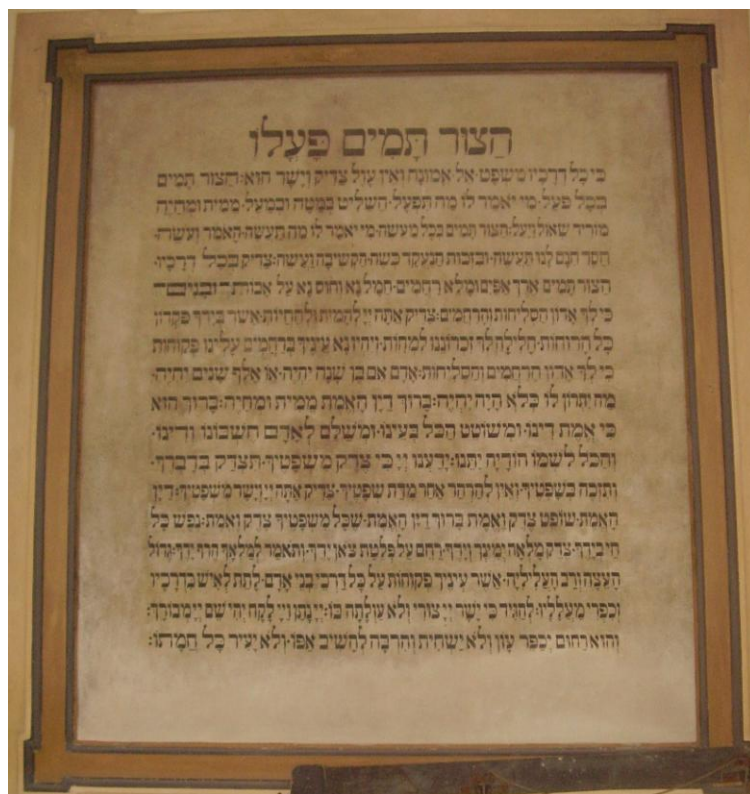 הַצּוּר תָּמִים פָּעֳלוֹ
כִּי כָל דְּרָכָיו מִשְׁפָּט אֵל אֱמוּנָה וְאֵין עָוֶל צַדִּיק וְיָשָׁר הוּא׃ הַצּוּר תָּמִים
בְּכָל פֹּעַל׃ מִי יֹאמַר לוֹ מַה תִּפְעָל׃ הַשַּׁלִּיט בְּמַטָּה וּבְמַעַל׃ מֵמִית וּמְחַיֶּה
מוֹרִיד שְׁאוֹל וַיָּעַל׃ הַצּוּר תָּמִים בְּכָל מַעֲשֶׂה׃ מִי יֹאמַר לוֹ מַה תַּעֲשֶׂה׃ הָאֹמֵר וְעוֹשֶׂה׃
חֶסֶד חִנָּם לָנוּ תַעֲשֶׂה׃ וּבִזְכוּת הַנֶּעֱקָד כְּשֶׂה׃ הַקְשִׁיבָה וַעֲשֵׂה׃ צַדִּיק בְּכָל דְּרָכָיו׃
הַצּוּר תָּמִים אֶרֶךְ אַפַּיִם וּמָלֵא רַחֲמִים׃ חֲמָל נָא וְחוּס נָא עַל אָבוֹת וּבָנִים
כִּי לְךָ אֲדוֹן הַסְּלִיחוֹת וְהָרַחֲמִים׃ צַדִּיק אַתָּה יְיָ לְהָמִית וּלְהַחֲיוֹת׃ אֲשֶׁר בְּיָדְךָ פִּקְדוֹן
כָּל הָרוּחוֹת׃ חָלִילָה לְּךָ זִכְרוֹנֵנוּ לִמְחוֹת׃ וְיִהְיוּ נָא עֵינֶיךָ בְּרַחֲמִים עָלֵינוּ פְּקוּחוֹת
כִּי לְךָ אֲדוֹן הָרַחֲמִים וְהַסְּלִיחוֹת׃ אָדָם אִם בֶּן שָׁנָה יִהְיֶה׃ אוֹ אֶלֶף שָׁנִים יִחְיֶה׃
מַה יִּתְרוֹן לוֹ כְּלֹא הָיָה יִהְיֶה׃ בָּרוּךְ דַּיַּן הָאֱמֶת מֵמִית וּמְחַיֶּה׃ בָּרוּךְ הוּא
כִּי אֱמֶת דִּינוֹ׃ וּמְשׁוֹטֵט הַכֹּל בְּעֵינוֹ׃ וּמְשַׁלֵּם לְאָדָם חֶשְׁבּוֹנוֹ וְדִינוֹ׃
וְהַכֹּל לִשְׁמוֹ הוֹדָיָה יִתֵּנוּ׃ יָדַעְנוּ יְיָ כִּי צֶדֶק מִשְׁפָּטֶיךָ׃ תִּצְדַּק בְּדָבְרֶךָ׃
וְתִזְכֶּה בְשָׁפְטֶיךָ׃ וְאֵין לְהַרְהֵר אַחַר מִדַּת שָׁפְטֶיךָ׃ צַדִּיק אַתָּה יְיָ וְיָשָׁר מִשְׁפָּטֶיךָ׃ דַּיַּן
הָאֱמֶת׃ שׁוֹפֵט צֶדֶק וֶאֱמֶת בָּרוּךְ דַּיַּן הָאֱמֶת׃ שֶׁכָּל מִשְׁפָּטֶיךָ צֶדֶק וֶאֱמֶת׃ נֶפֶשׁ כָּל
חַי בְּיָדֶךָ׃ צֶדֶק מָלְאָה יְמִינְךָ וְיָדֶךָ׃ רַחֵם עַל פְּלֵטַת צֹאן יָדֶךָ׃ וְתֹאמַר לַמַּלְאָךְ הֶרֶף יָדֶךָ׃ גְּדוֹל
הָעֵצָה וְרַב הָעֲלִילִיָּה׃ אֲשֶׁר עֵינֶיךָ פְּקוּחוֹת עַל כָּל דַּרְכֵי בְּנֵי אָדָם׃ לָתֵת לְאִישׁ כִּדְרָכָיו
וְכִפְרִי מַעֲלָלָיו׃ לְהַגִּיד כִּי יָשָׁר יְיָ צוּרִי וְלֹא עַוְלָתָה בּוֹ׃ יְיָ נָתַן וַיְיָ לָקָח יְהִי שֵׁם יְיָ מְבוֹרָךְ׃
וְהוּא רַחוּם יְכַפֵּר עָוֹן וְלֹא יַשְׁחִית וְהִרְבָּה לְהָשִׁיב אַפּוֹ׃ וְלֹא יָעִיר כָּל חֲמָתוֹ׃